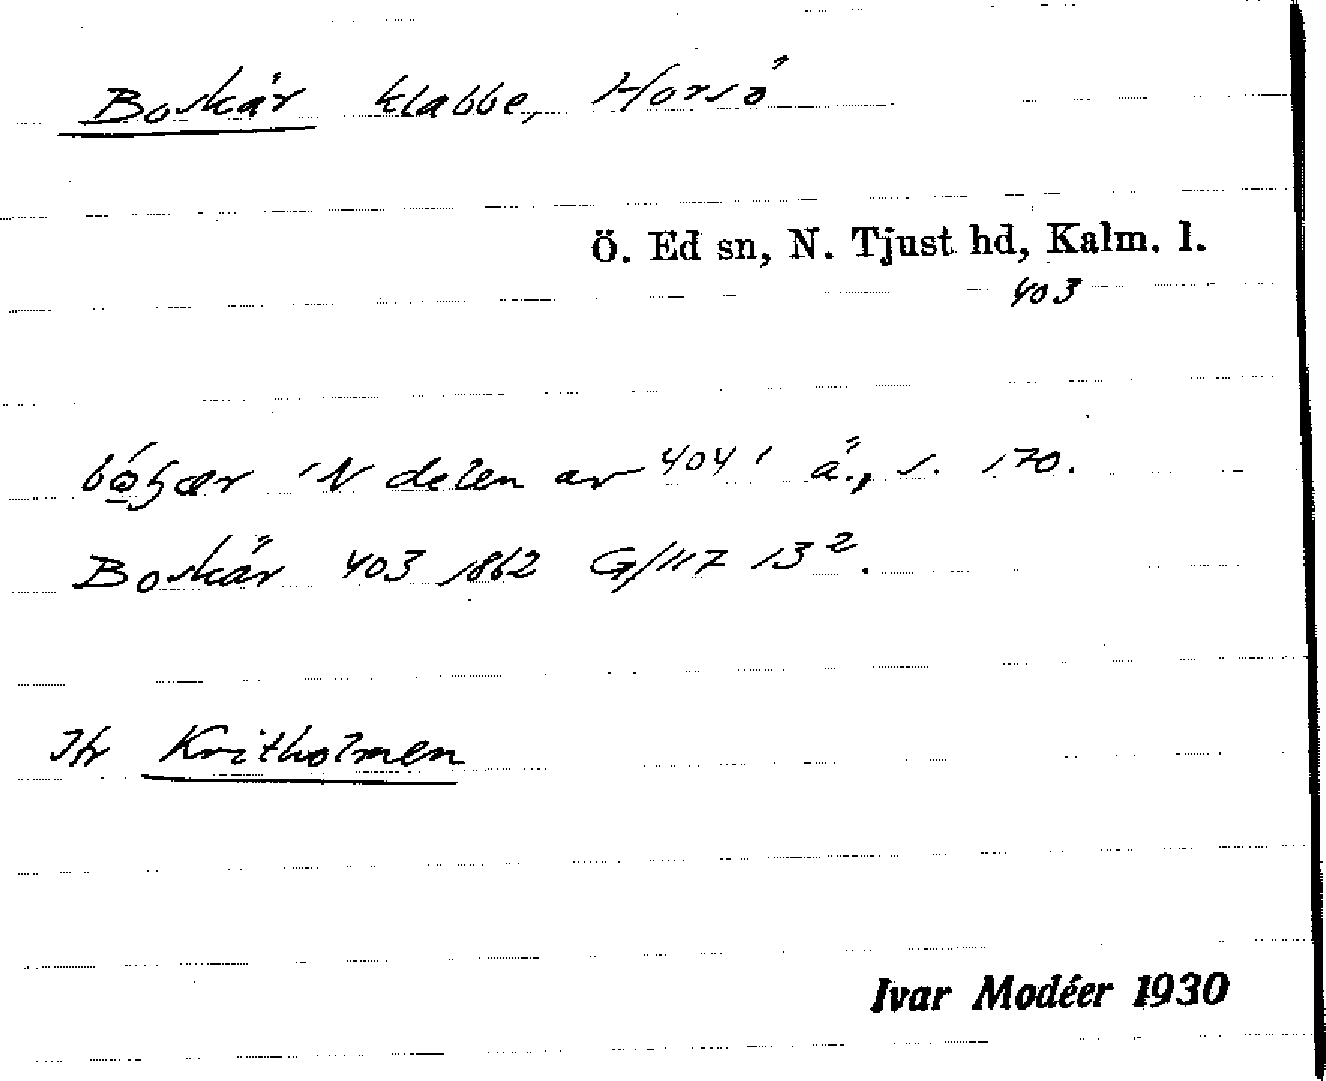 Boskär klabbe, Horsö
Ö. Ed sn, N. Tjust hd, Kalm. l.
403
'N delen av 404' a., s. 170.
Boskär 403 1862 G/117 13².
Jfr Kritholmen
Ivar Modéer 1930